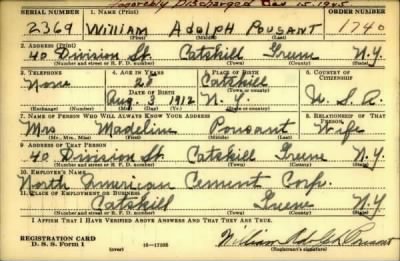 Honorably Discharged Dec 15, 1945
SERIAL NUMBER 1. NAME (Print) ORDER NUMBER
2369 William Adolph Pousant 1740
(First) (Middle) (Last)
2. ADDRESS (Print)
40 Division St. Catskill Greene N.Y.
(Number and street or R. F. D. number) (Town) (County) (State)
3. TELEPHONE 4. AGE IN YEARS 5. PLACE OF BIRTH 6. COUNTRY OF CITIZENSHIP
None 28 Catskill
DATE OF BIRTH (Town or county)
Aug. 3 1912 N.Y. U.S.A.
(Exchange) (Number) (Mo.) (Day) (Yr.) (State or country)
7. NAME OF PERSON WHO WILL ALWAYS KNOW YOUR ADDRESS 8. RELATIONSHIP OF THAT PERSON
Mrs Madeline Pousant Wife
(Mr., Mrs., Miss) (First) (Middle) (Last)
9. ADDRESS OF THAT PERSON
40 Division St. Catskill Greene N.Y.
(Number and street or R. F. D. number) (Town) (County) (State)
10. EMPLOYER'S NAME
North American Cement Corp.
11. PLACE OF EMPLOYMENT OR BUSINESS
Catskill Greene N.Y.
(Number and street or R. F. D. number) (Town) (County) (State)
I AFFIRM THAT I HAVE VERIFIED ABOVE ANSWERS AND THAT THEY ARE TRUE.
REGISTRATION CARD
D. S. S. FORM 1 (over) 16—17105 William Adolph Pousant
(Registrant's signature)